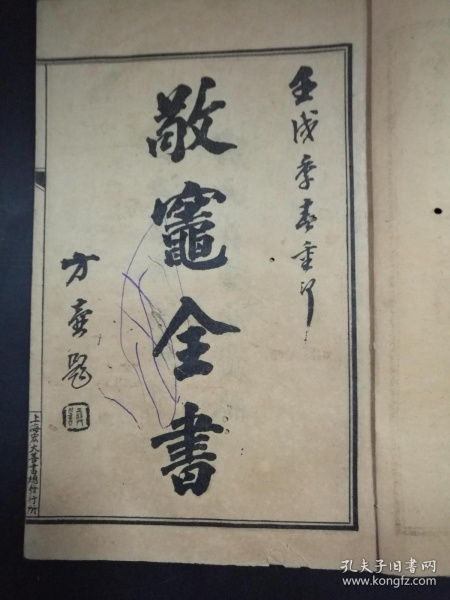 壬戌季春重印
敬竈全書
方壺題
上海宏大善書總發行所
孔夫子旧书网
www.kongfz.com